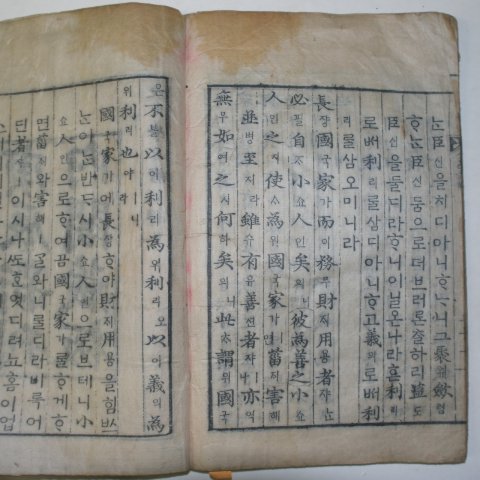 ᄂᆞᆫ臣신을치디아니ᄒᆞᄂᆞ니그聚취斂렴
ᄒᆞᄂᆞᆫ臣신둠으로더브러로출하리盜도
臣신을둘디라ᄒᆞ니이닐온나라ᄒᆞᆫ利리
로ᄡᅥ利리ᄅᆞᆯ삼디아니ᄒᆞ고義의로ᄡᅥ利
리ᄅᆞᆯ삼오미니라
長댱國국家가而이務무財ᄌᆡ用용者쟈ᄂᆞᆫ
必필自ᄌᆞ小쇼人인矣의니彼爲善之小쇼
人인之지使ᄉᆞ爲위國국家가면菑ᄌᆡ害해
並병至지라雖슈有유善션者쟈ㅣ나亦역
無무如여之지何하矣의니此ᄎᆞ謂위國국
은不블以이利리爲위利리오以이義의爲
위利리也야ㅣ니라
國국家가애長댱ᄒᆞ야財ᄌᆡ用용을힘ᄡᅳ
ᄂᆞᆫ이ᄂᆞᆫ반ᄃᆞ시小쇼人인으로브테니小
쇼人인으로ᄒᆞ여곰國국家가ᄅᆞᆯᄒᆞ게ᄒᆞ
면菑ᄌᆡ와害해ㅣᄀᆞᆯ와니ᄅᆞᆯ디라비록어
딘者쟈ㅣ이시나ᄯᅩᄒᆞᆫ엇디려뇨홈이업